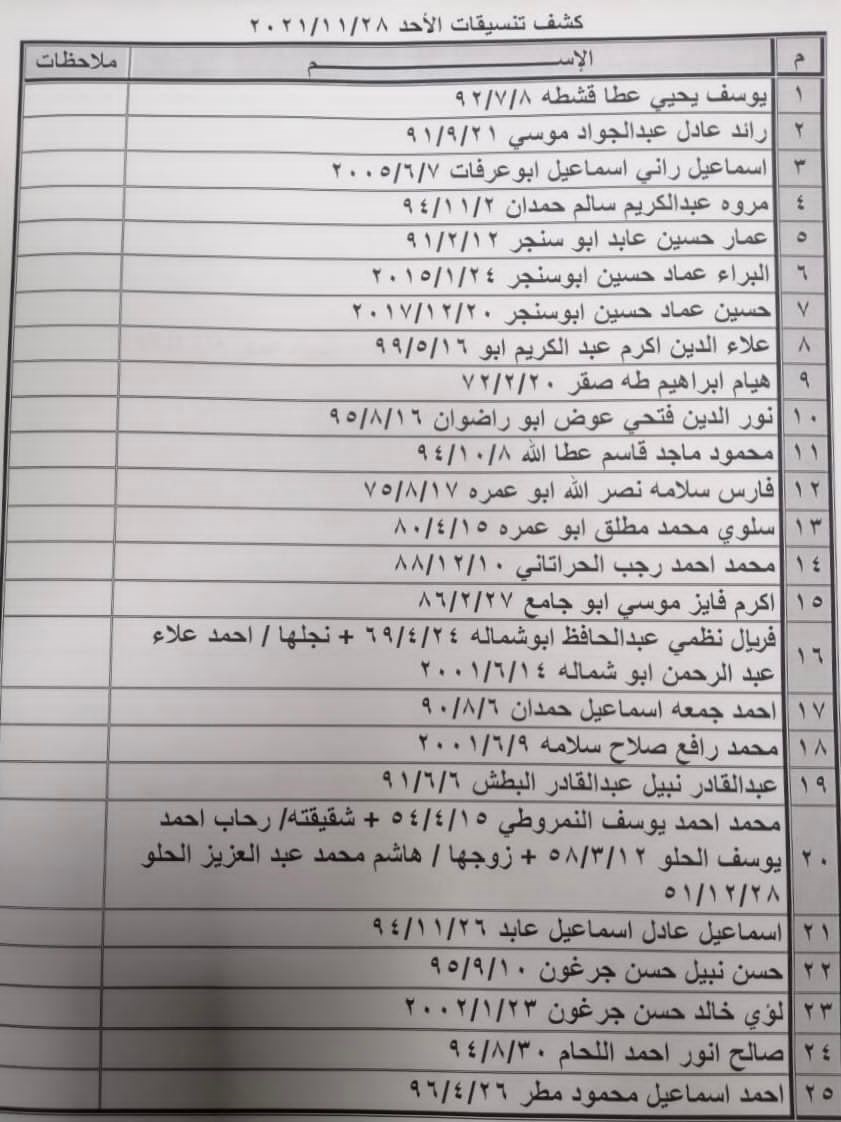 كشف تنسيقات الأحد ٢٠٢١/١١/٢٨
م الإســـــــم ملاحظات
١ يوسف يحيي عطا قشطه ٩٢/٧/٨
٢ رائد عادل عبدالجواد موسي ٩١/٩/٢١
٣ اسماعيل راني اسماعيل ابوعرفات ٢٠٠٥/٦/٧
٤ مروه عبدالكريم سالم حمدان ٩٤/١١/٢
٥ عمار حسين عابد ابو سنجر ٩١/٢/١٢
٦ البراء عماد حسين ابوسنجر ٢٠١٥/١/٢٤
٧ حسين عماد حسين ابوسنجر ٢٠١٧/١٢/٢٠
٨ علاء الدين اكرم عبد الكريم ابو ٩٩/٥/١٦
٩ هيام ابراهيم طه صقر ٧٢/٢/٢٠
١٠ نور الدين فتحي عوض ابو راضوان ٩٥/٨/١٦
١١ محمود ماجد قاسم عطا الله ٩٤/١٠/٨
١٢ فارس سلامه نصر الله ابو عمره ٧٥/٨/١٧
١٣ سلوي محمد مطلق ابو عمره ٨٠/٤/١٥
١٤ محمد احمد رجب الحراتاني ٨٨/١٢/١٠
١٥ اكرم فايز موسي ابو جامع ٨٦/٢/٢٧
١٦ فريال نظمي عبدالحافظ ابوشماله ٦٩/٤/٢٤ + نجلها / احمد علاء
عبد الرحمن ابو شماله ٢٠٠١/٦/١٤
١٧ احمد جمعه اسماعيل حمدان ٩٠/٨/٦
١٨ محمد رافع صلاح سلامه ٢٠٠١/٦/٩
١٩ عبدالقادر نبيل عبدالقادر البطش ٩١/٦/٦
٢٠ محمد احمد يوسف النمروطي ٥٤/٤/١٥ + شقيقته/ رحاب احمد
يوسف الحلو ٥٨/٣/١٢ + زوجها / هاشم محمد عبد العزيز الحلو
٥١/١٢/٢٨
٢١ اسماعيل عادل اسماعيل عابد ٩٤/١١/٢٦
٢٢ حسن نبيل حسن جرغون ٩٥/٩/١٠
٢٣ لؤي خالد حسن جرغون ٢٠٠٢/١/٢٣
٢٤ صالح انور احمد اللحام ٩٤/٨/٣٠
٢٥ احمد اسماعيل محمود مطر ٩٦/٤/٢٦